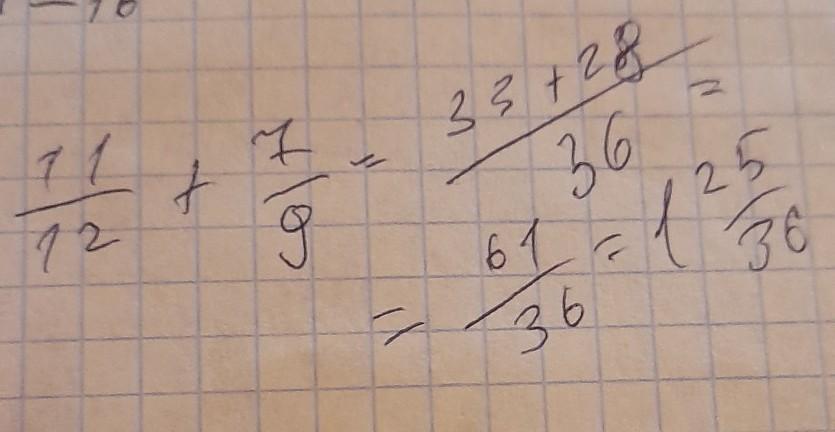 11/12 + 7/9 = (33 + 28)/36 =
= 61/36 = 1 25/36